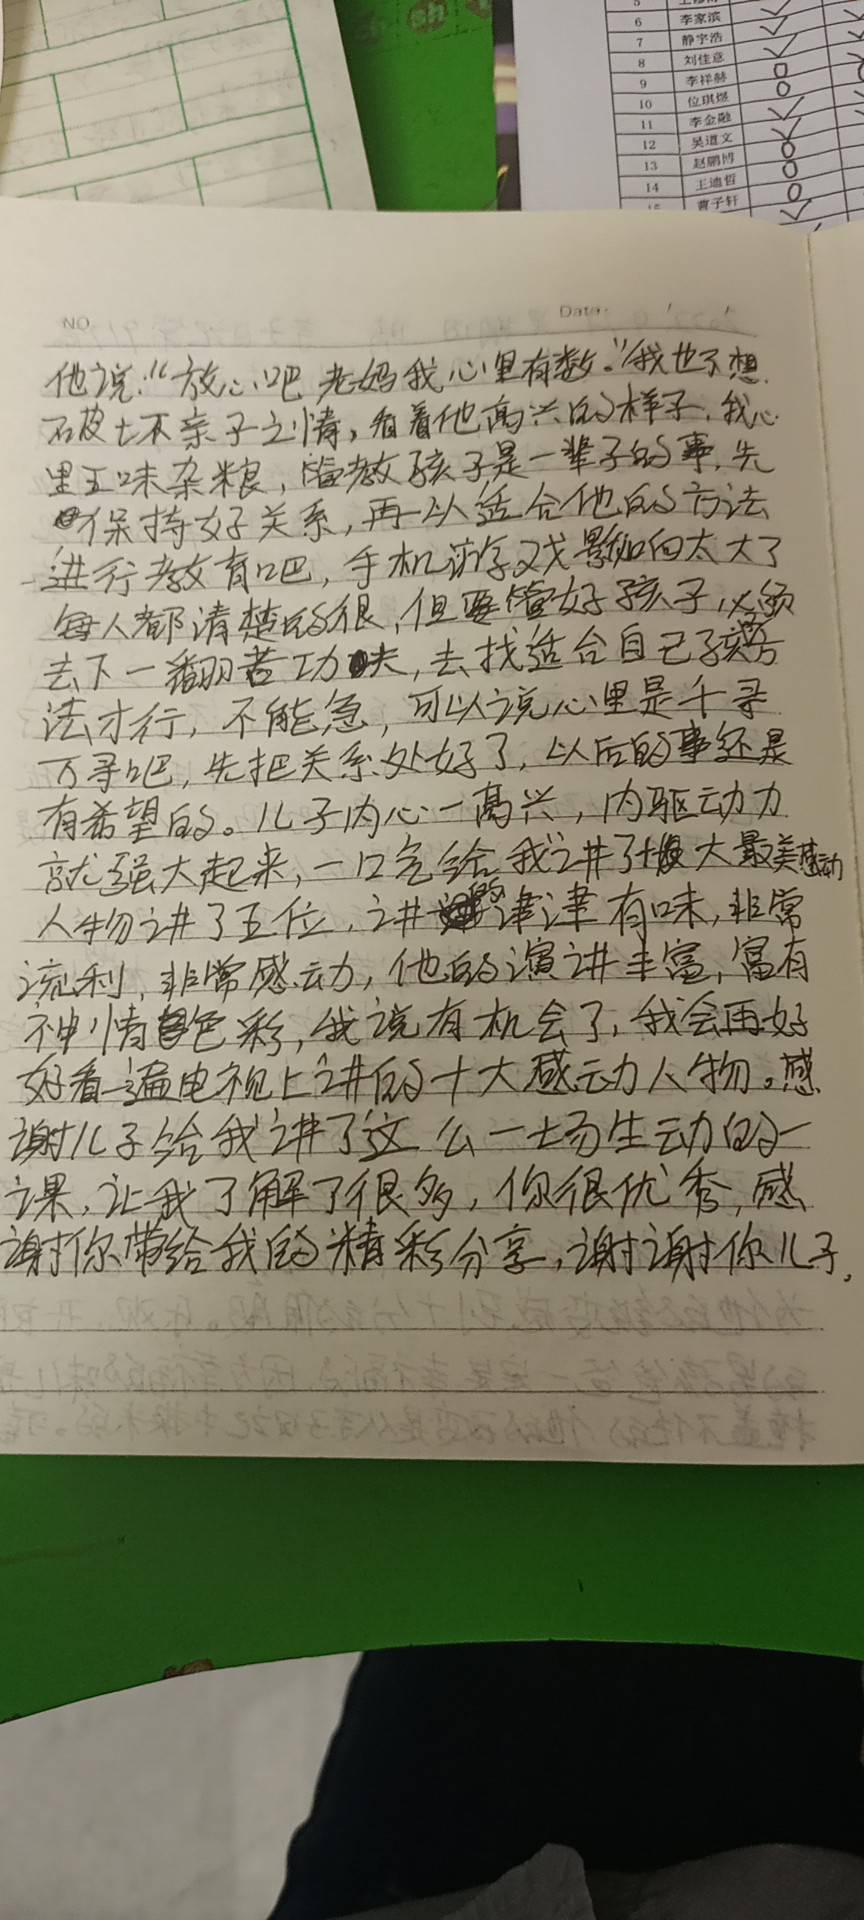 5
6 李家滨
7 静宇浩
8 刘佳意
9 李祥赫
10 位琪煜
11 李金融
12 吴道文
13 赵鹏博
14 王迪哲
15 曹子轩
NO.
Date:
他说:“放心吧 老妈我心里有数。”我也不想
破坏亲子之情,看着他高兴的样子,我心
里五味杂粮,管教孩子是一辈子的事,先
保持好关系,再以适合他的方法
进行教育吧,手机游戏影响太大了
每人都清楚的很,但要管好孩子,必须
去下一翻苦功夫,去找适合自己孩方
法才行,不能急,可以说心里是千寻
万寻吧,先把关系处好了,以后的事还是
有希望的。儿子内心一高兴,内驱动力
就强大起来,一口气给我讲了十大最美感动
人物讲了五位,讲的津津有味,非常
流利,非常感动,他的演讲丰富,富有
神情色彩,我说有机会了,我会再好
好看一遍电视上讲的十大感动人物。感
谢儿子给我讲了这么一场生动的一
课,让我了解了很多,你很优秀,感
谢你带给我的精彩分享,谢谢你儿子,